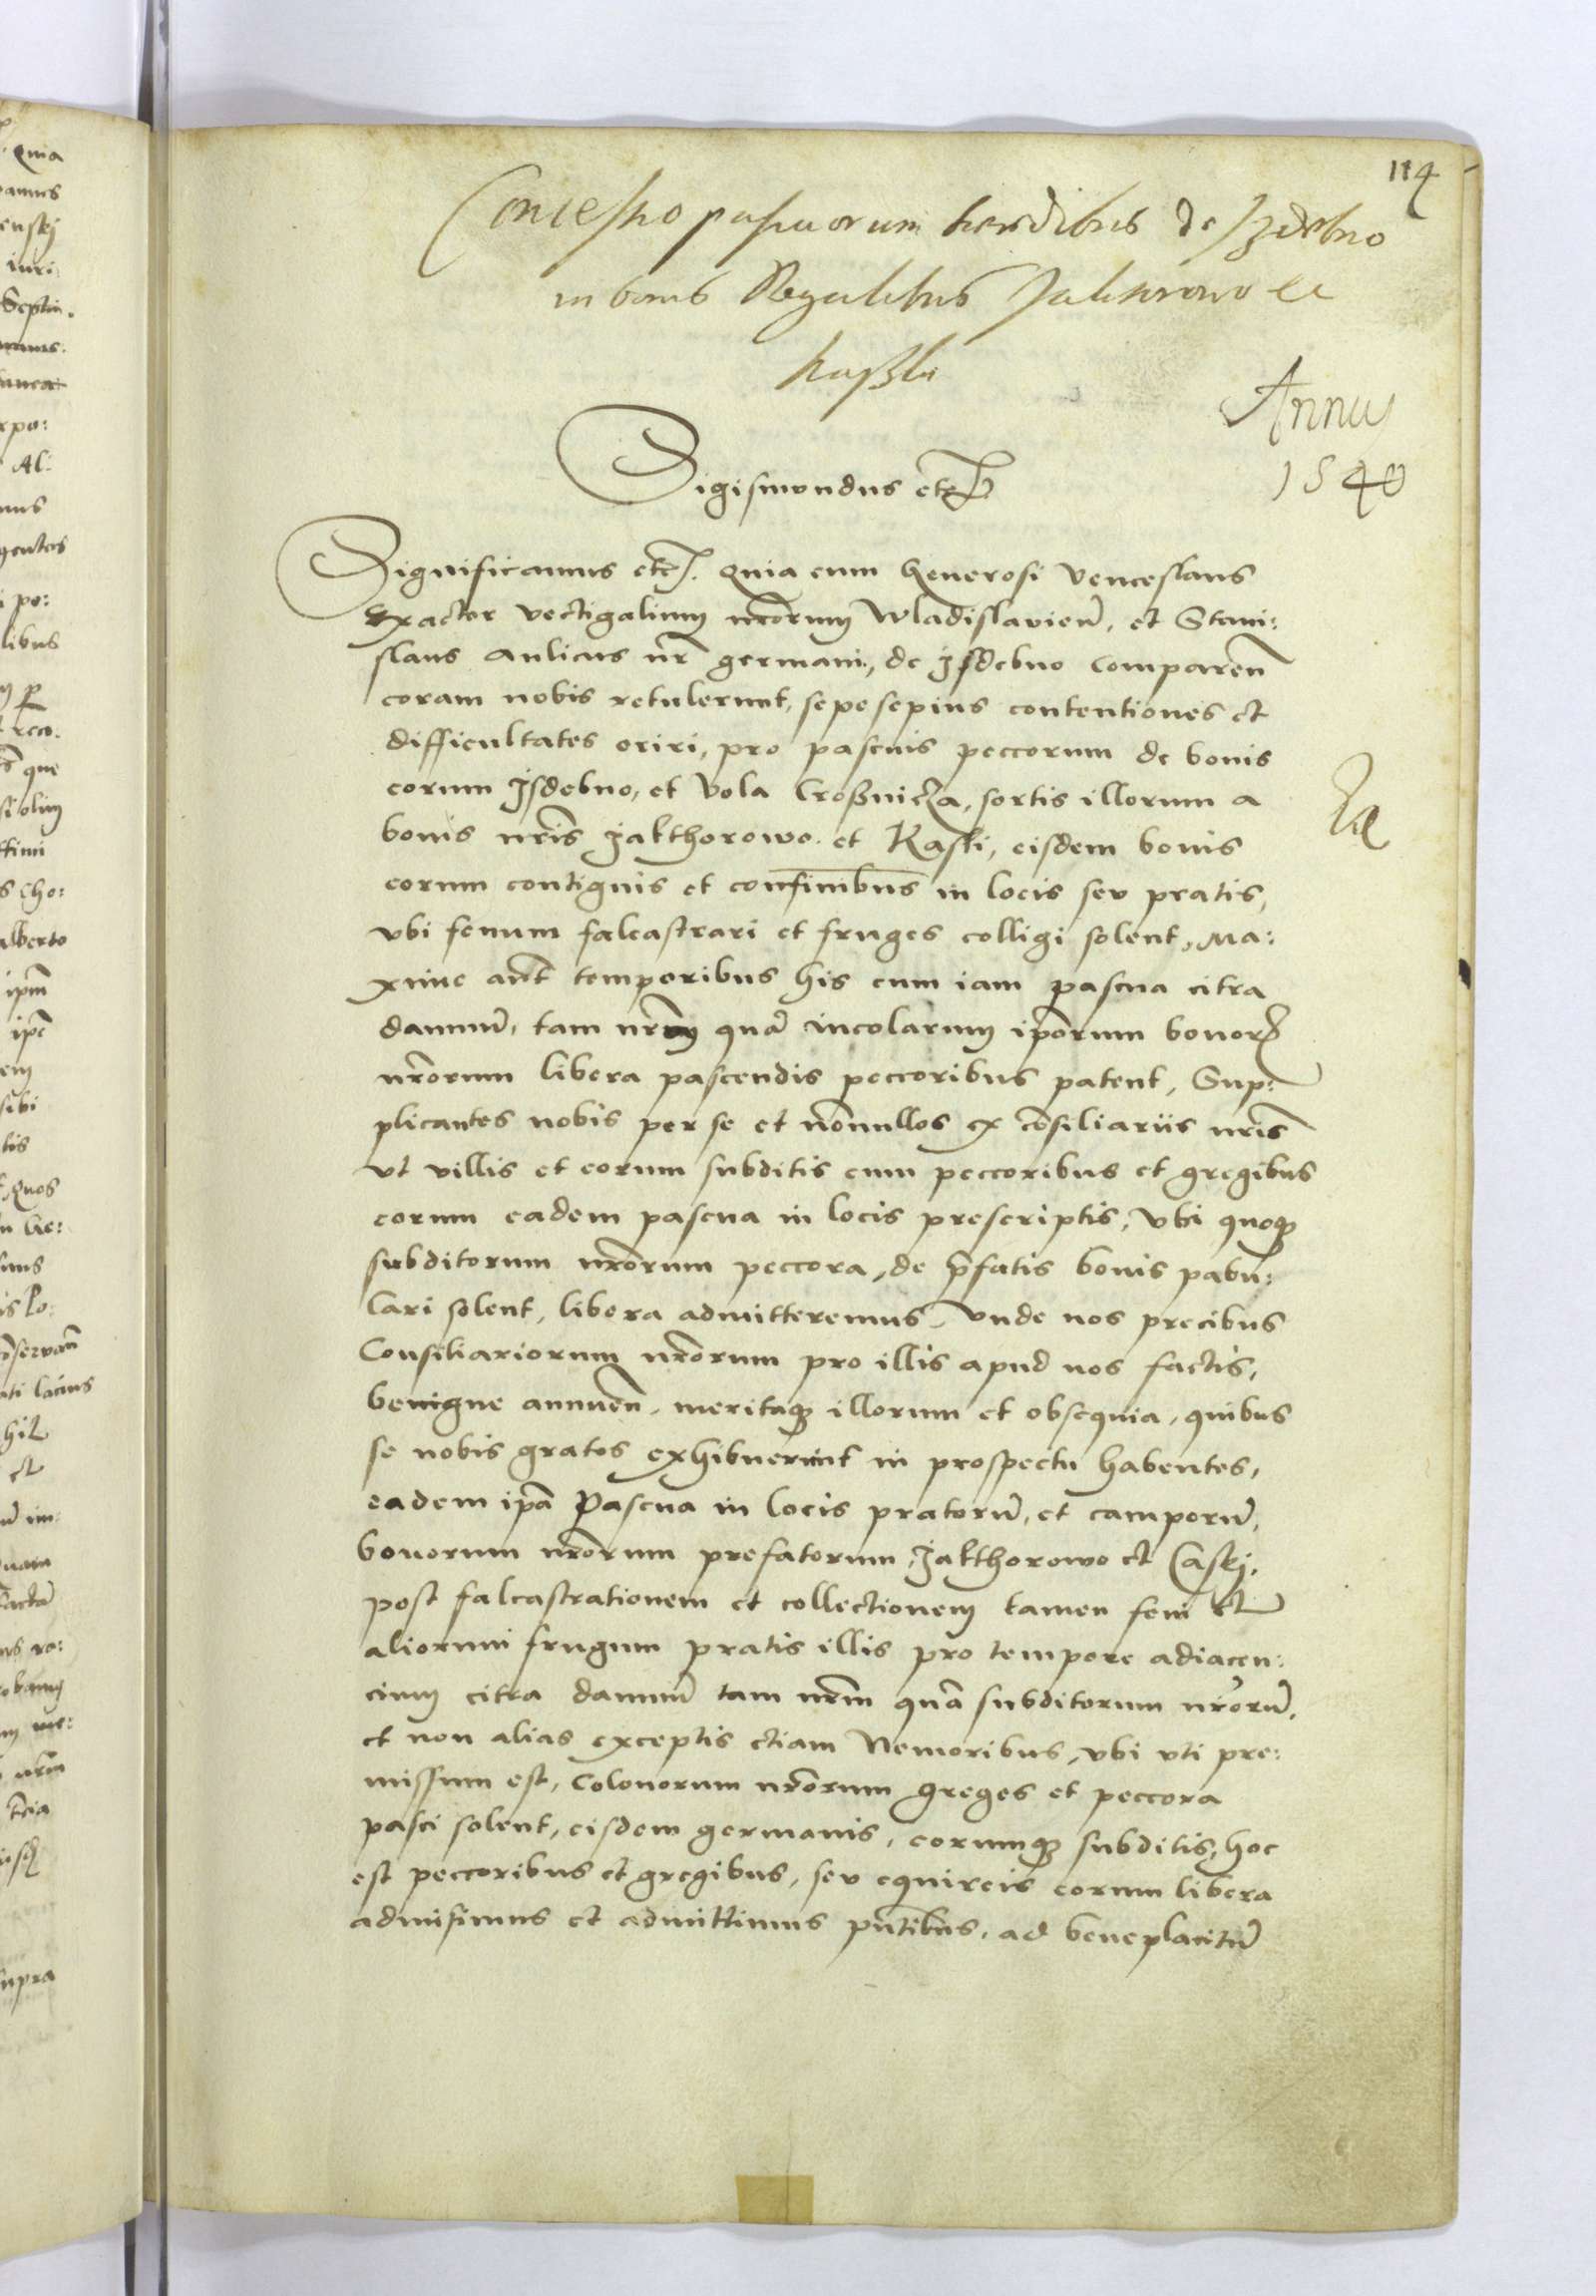 114
Concessio pascuorum heredibus de Izdebno
in bonis Regalibus Jakthorowo et
Kaszki
Annus
1540
Sigismundus etc
Significamus etc. Quia cum Generosi Venceslaus
Exactor vectigalium nrorum Wladislavien̄, et Stani:
slaus Aulicus nr̄ germani, de Isdebno Comparen̄
coram nobis retulerunt, sepe sepius contentiones et
difficultates oriri, pro pascuis peccorum de bonis
eorum Isdebno, et Vola Croßnicza, sortis illorum a
bonis nrīs Jakthorowo et Kaski, eisdem bonis
eorum contiguis et confinibus in locis seu pratis,
vbi fenum falcastrari et fruges colligi solent, Ma:
xime aūt temporibus his cum iam pascua citra
damnū, tam nrm̄ quā incolarum ip̄orum bonor̄
nrōrum libera pascendis peccoribus patent, Sup:
plicantes nobis per se et nōnullos ex cōsiliariis nrīs
vt villis et eorum subditis cum peccoribus et gregibus
eorum eadem pascua in locis prescriptis, vbi quoqȝ
subditorum nrōrum peccora, de p̄fatis bonis pabu:
lari solent, libera admitteremus. Vnde nos precibus
Consiliariorum nrōrum pro illis apud nos factis,
benigne annuen̄, meritaqȝ illorum et obsequia, quibus
se nobis gratos exhibuerunt in prospectu habentes,
eadem ipā Pascua in locis pratorū, et camporū,
bonorum nrōrum prefatorum, Jakthorowo et Caskj,
post falcastrationem et collectionem tamen feni et
aliorum frugum pratis illis pro tempore adiacen:
cium citra damnū tam nrm̄ quā subditorum nrōrū,
et non alias exceptis etiam Nemoribus, vbi vti pre:
missum est, Colonorum nrōrum greges et peccora
pasci solent, eisdem germanis, eorumqȝ subditis, hoc
est peccoribus et gregibus, seu equireis eorum libera
admisimus et admittimus pn̄tibus, ad beneplacitū